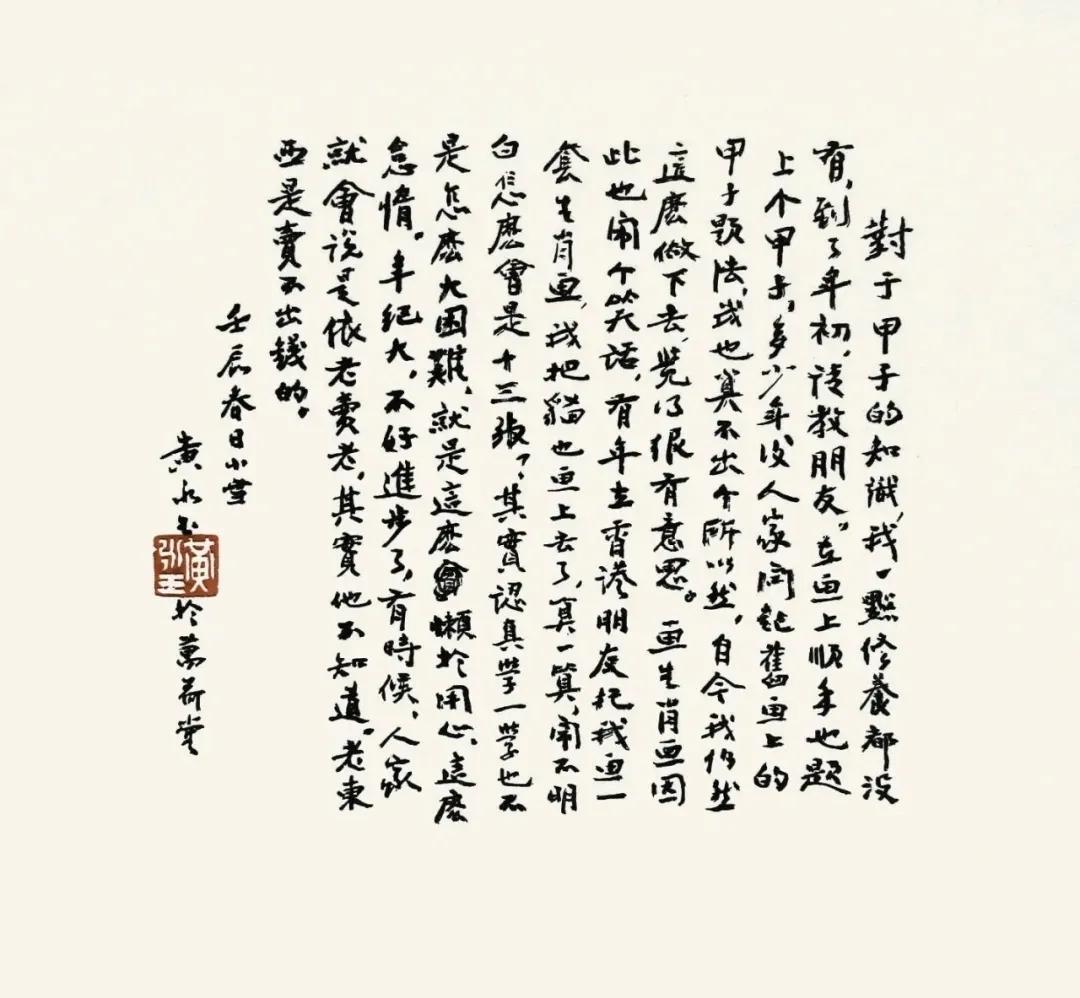 對于甲子的知識，我一點修養都没
有，到了年初，请教朋友。在画上順手也題
上个甲子，多少年没人家问起舊画上的
甲子题法，我也算不出个所以然，自今我仍然
這麽做下去，觉得很有意思。画生肖画因
此也闹个笑话，有年在香港朋友托我画一
套生肖画，我把貓也画上去了，真一算，闹不明
白怎麽會是十三張？其實認真学一学也不
是怎麽大困難，就是這麽會懒於用心，這麽
怠惰。年纪大，不好進步了，有時候，人家
就會说是依老賣老，其實他不知道。老東
西是賣不出錢的。
壬辰春日小雪
黄永玉於萬荷堂
黄永玉